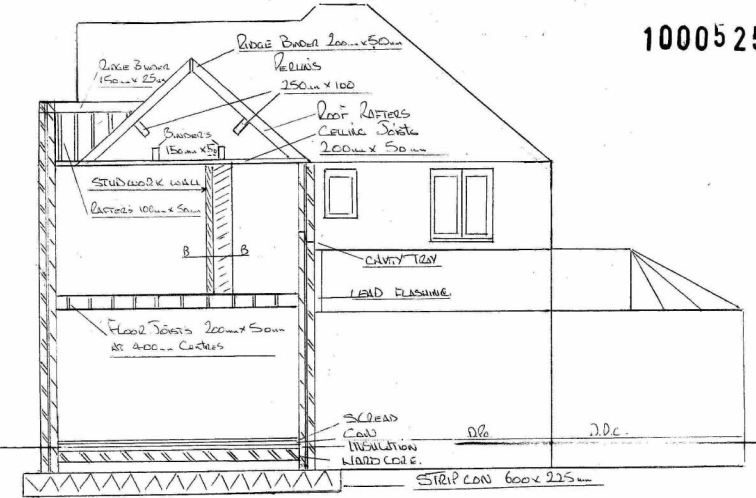 100052
RIDGE BINDER 200mm x 50mm
RIDGE BINDER
150mm x 25mm
PERLINS
250mm x 100
ROOF RAFTERS
CEILING JOISTS
200mm x 50mm
BINDERS
150mm x 50
STUDWORK WALL
RAFTERS 100mm x 50mm
B B
CAVITY TRAY
LEAD FLASHING
FLOOR JOISTS 200mm x 50mm
AT 400mm CENTRES
SCREAD
CON
INSULATION
HARDCORE.
DPC
D.P.C.
STRIP CON 600 x 225mm